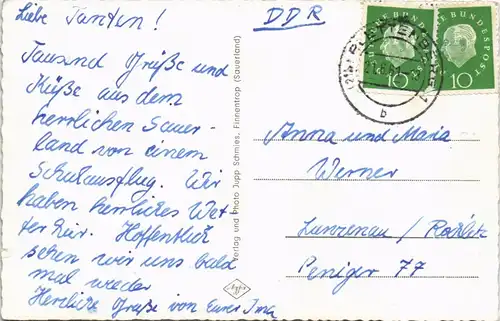 Liebe Tanten!
Tausend Grüße und
Küße aus dem
herrlichen Sauer-
land von einem
Schulausflug. Wir
haben herrliches Wet-
ter hier. Hoffentlich
sehen wir uns bald
mal wieder
Herzliche Grüße von Eurer Ima
Verlag und Photo Jupp Schmies, Finnentrop (Sauerland)
DDR
DEUTSCHE BUNDESPOST
10
10
PLETTENBERG
b
Anna und Maria
Werner
Lunzenau / Rochlitz
Peniger 77